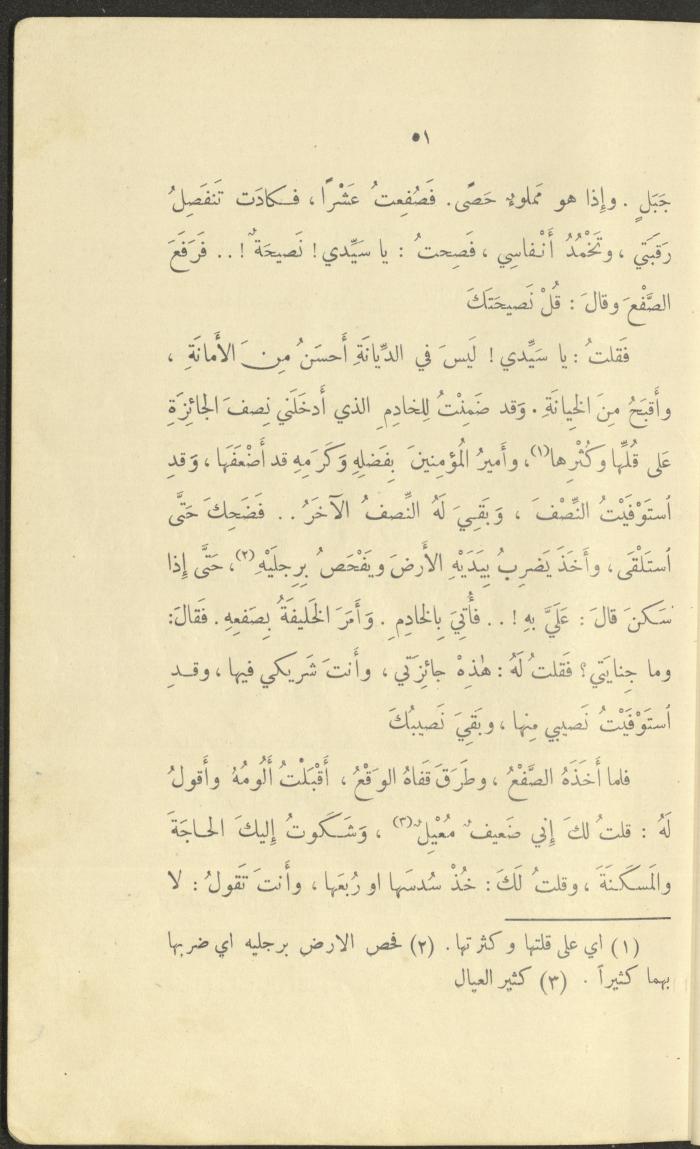 ٥١
جَبَلٍ . وإِذا هو مَملوءٌ حَصًى. فَصُفِعتُ عَشْرًا ، فكادَت تَنفَصِلُ
رَقبَتي ، وتَخْمُدُ أَنْفاسِي ، فَصِحتُ : يا سَيِّدي ! نَصيحَةٌ ! . . فَرَفَعَ
الصَّفْعَ وقالَ : قُلْ نَصيحَتَكَ
فَقلتُ : يا سَيِّدي ! لَيسَ في الدِّيانَةِ أَحسَنُ مِنَ الأَمانَةِ ،
وأَقبَحُ مِنَ الخِيانَةِ . وَقد ضَمِنْتُ لِلخادِمِ الذي أَدخَلَني نِصفَ الجائِزَةِ
عَلى قُلِّها وكُثْرِها(١)، وأَميرُ المُؤمِنينَ بِفَضلِهِ وَكَرَمِهِ قد أَضْعَفَها ، وَقدِ
ٱستَوْفَيْتُ النِّصْفَ ، وَبَقِيَ لَهُ النِّصفُ الآخَرُ . . فَضَحِكَ حَتَّى
ٱستَلْقَى ، وأَخَذَ يَضرِبُ بِيَدَيْهِ الأَرضَ ويَفْحَصُ بِرِجلَيْهِ(٢)، حَتَّى إِذا
سَكنَ قالَ : عَلَيَّ بهِ ! . . فأُتِيَ بِالخادِمِ . وَأَمَرَ الخَليفَةُ بِصَفعِهِ . فَقالَ:
وما جِنايَتي ؟ فَقلتُ لَهُ : هٰذِهْ جائِزَتي ، وأَنتَ شَريكي فيها ، وقدِ
ٱستَوْفَيْتُ نَصيبي مِنها ، وبَقِيَ نَصيبُكَ
فلما أَخَذَهُ الصَّفْعُ ، وطَرَقَ قَفاهُ الوَقْعُ ، أَقْبَلْتُ أَلُومُهُ وأَقولُ
لَهُ : قلتُ لكَ إِني ضَعيفٌ مُعْيِلٌ(٣) ، وَشَكَوتُ إِليكَ الحاجَةَ
والمَسكَنَةَ ، وقلتُ لَكَ : خُذْ سُدسَها او رُبُعَها ، وأَنتَ تَقولُ : لا
(١) اي على قلتها وكثرتها . (٢) فحص الارض برجليه اي ضربها
بهما كثيراً . (٣) كثير العيال